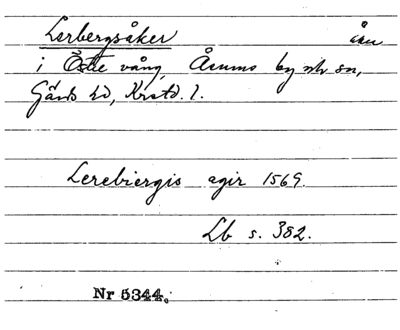 Lerbergsåker åker
i Östre vång, Åsums by och sn,
Gärds hd, Krstd. l.
Lerebiergis agir 1569.
Lb s. 382.
Nr 5344.